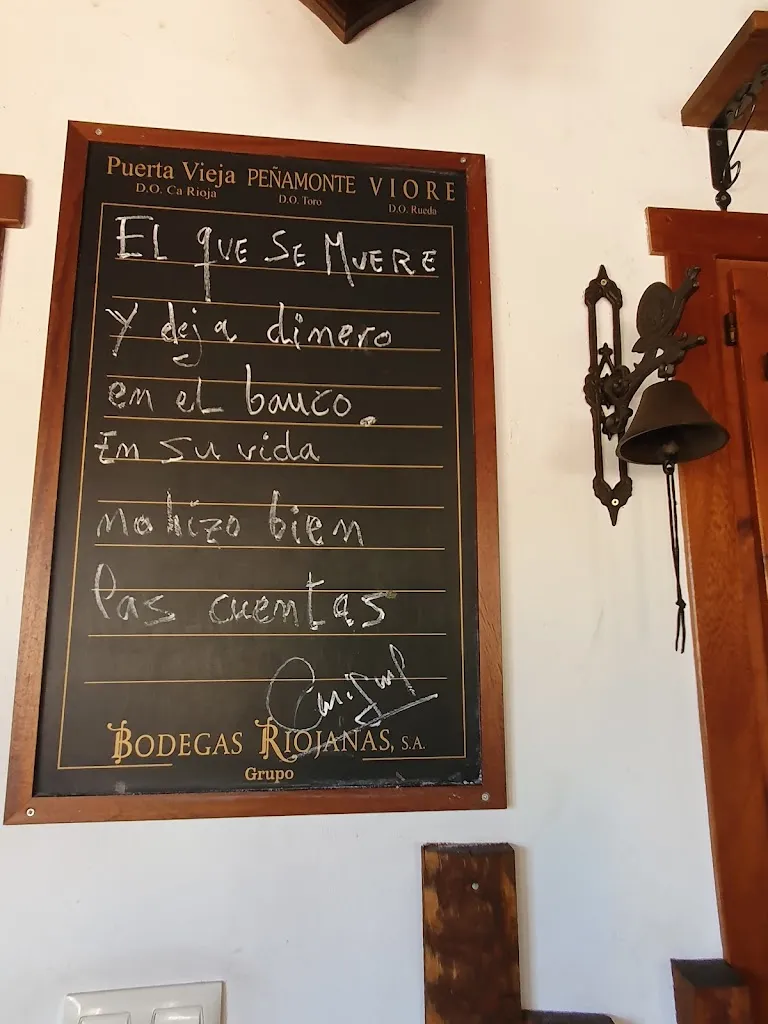 Puerta Vieja PEÑAMONTE VIORE
D.O. Ca Rioja D.O. Toro D.O. Rueda
EL qUE SE MUERE
Y deja dinero
en eL banco.
En su vida
no hizo bien
las cuentas
BODEGAS RIOJANAS, S.A.
Grupo